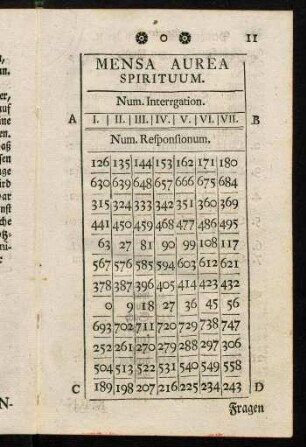 11
MENSA AUREA
SPIRITUUM.
Num. Interrgation.
A I. II. III. IV. V. VI. VII. B
Num. Reſponſionum.
126 135 144 153 162 171 180
630 639 648 657 666 675 684
315 324 333 342 351 360 369
441 450 459 468 477 486 495
63 27 81 90 99 108 117
567 576 585 594 603 612 621
378 387 396 405 414 423 432
0 9 18 27 36 45 56
693 702 711 720 729 738 747
252 261 270 279 288 297 306
504 513 522 531 540 549 558
C 189 198 207 216 225 234 243 D
Fragen